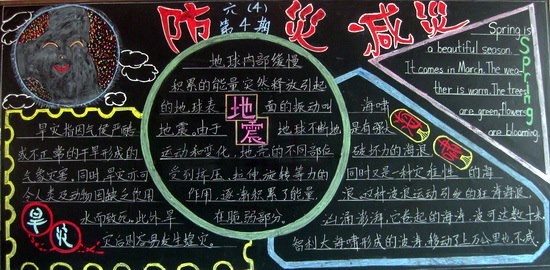 六(4)
第4期
防灾减灾
旱灾指因气候严酷
或不正常的干旱形成的
气象灾害,同时旱灾亦可
令人类及动物因缺乏饮用
水而致死,此外旱
灾后则容易发生蝗灾。
旱灾
地球内部缓慢
积累的能量突然释放引起
的地球表 面的振动叫
地震。由于 地球不断地
运动和变化,地壳的不同部位
受到挤压、拉伸、旋转等力的
作用,逐渐积累了能量,
在脆弱部分,
地震
海啸
是有强大
破坏力的海浪
同时又是一种灾难性 的海
浪。这种波浪运动引发的狂涛骇浪,
汹涌澎湃,它卷起的海涛,波高可达数十米
智利大海啸形成的波涛,移动了上万公里也不减
Spring is
a beautiful season.
It comes in March. The wea-
ther is warm. The trees
are green, flowers
are blooming.
Spring